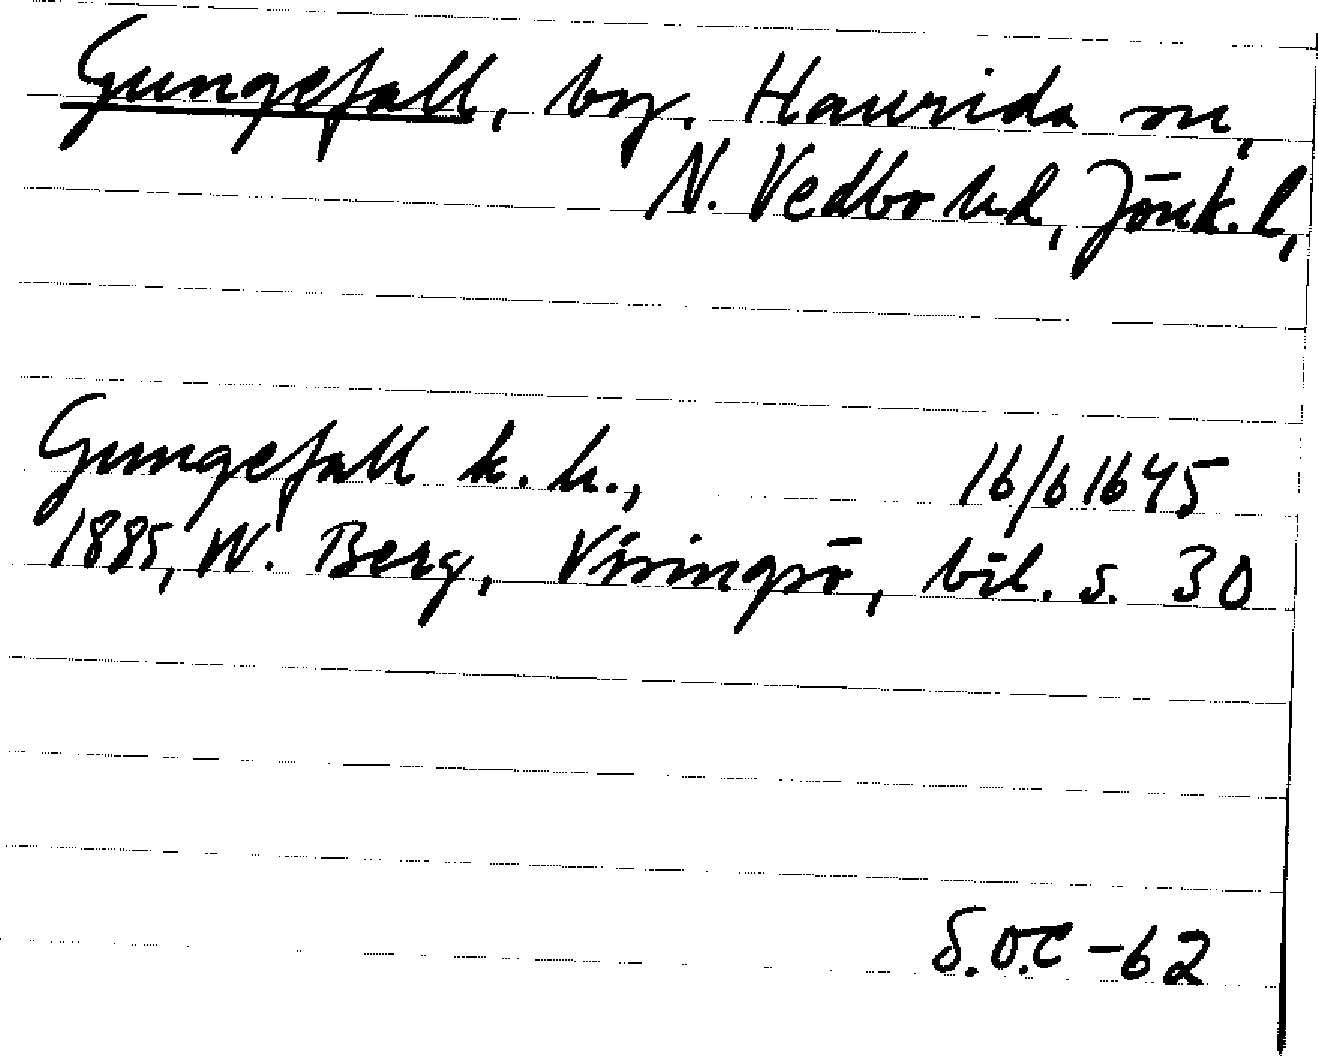 Gungefall, by. Haurida sn,
N. Vedbo hd, Jönk. l,
Gungefall k. h., 16/6 1645
1885, W. Berg, Visingsö, bil. s. 30
S.O.C -62